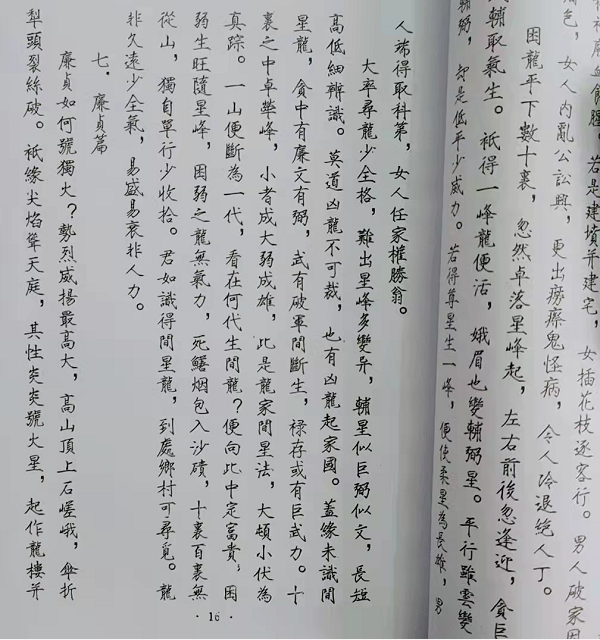 血食腥，若是建墳并建宅，女插花枝逐客行。男人破家因
色，女人內亂公訟興，更出癆瘵鬼怪病，令人冷退绝人丁。
困龍平下數十裏，忽然卓落星峰起，左右前後忽逢迎，貪巨
輔取氣生。祇得一峰龍便活，娥眉也變輔弼星。平行雖雲變
輔弼，却是低平少威力。若得尊星生一峰，便使柔星為長雄，男
人端得取科第，女人任家權勝翁。
大率尋龍少全格，難出星峰多變异，輔星似巨弼似文，長短
高低細辨識。莫道凶龍不可裁，也有凶龍起家國。蓋緣未識間
星龍，貪中有廉文有弼，武有破軍間斷生，禄存或有巨武力。十
裏之中卓華峰，小者成大弱成雄，此是龍家間星法，大頓小伏為
真踪。一山便斷為一代，看在何代生間龍？便向此中定富貴，困
弱生旺隨星峰，困弱之龍無氣力，死鰌烟包入沙磧，十裏百裏無
從山，獨自單行少收拾。君如識得間星龍，到處鄉村可尋覓。龍
非久遠少全氣，易盛易衰非人力。
七．廉貞篇
廉貞如何號獨火？勢烈威揚最高大，高山頂上石嵯峨，傘折
犁頭裂絲破。祇緣尖焰聳天庭，其性炎炎號火星，起作龍樓并
·16·